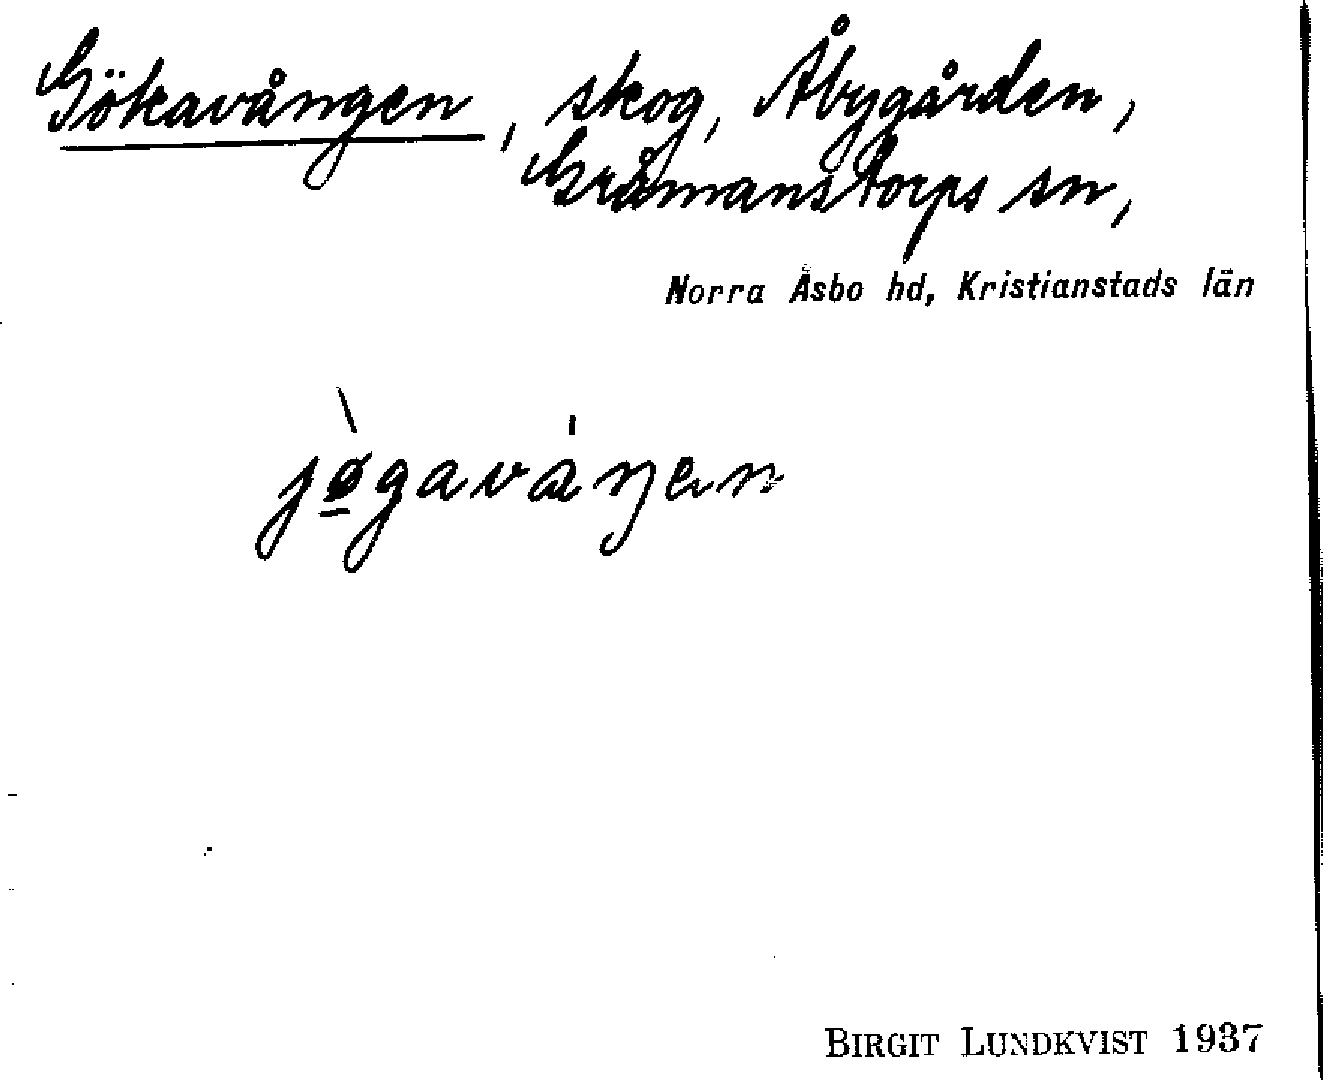 Gökavången, skog, Åbygården,
Gråmanstorps sn,
Norra Åsbo hd, Kristianstads län
jø̱̀gaváŋen
BIRGIT LUNDKVIST 1937